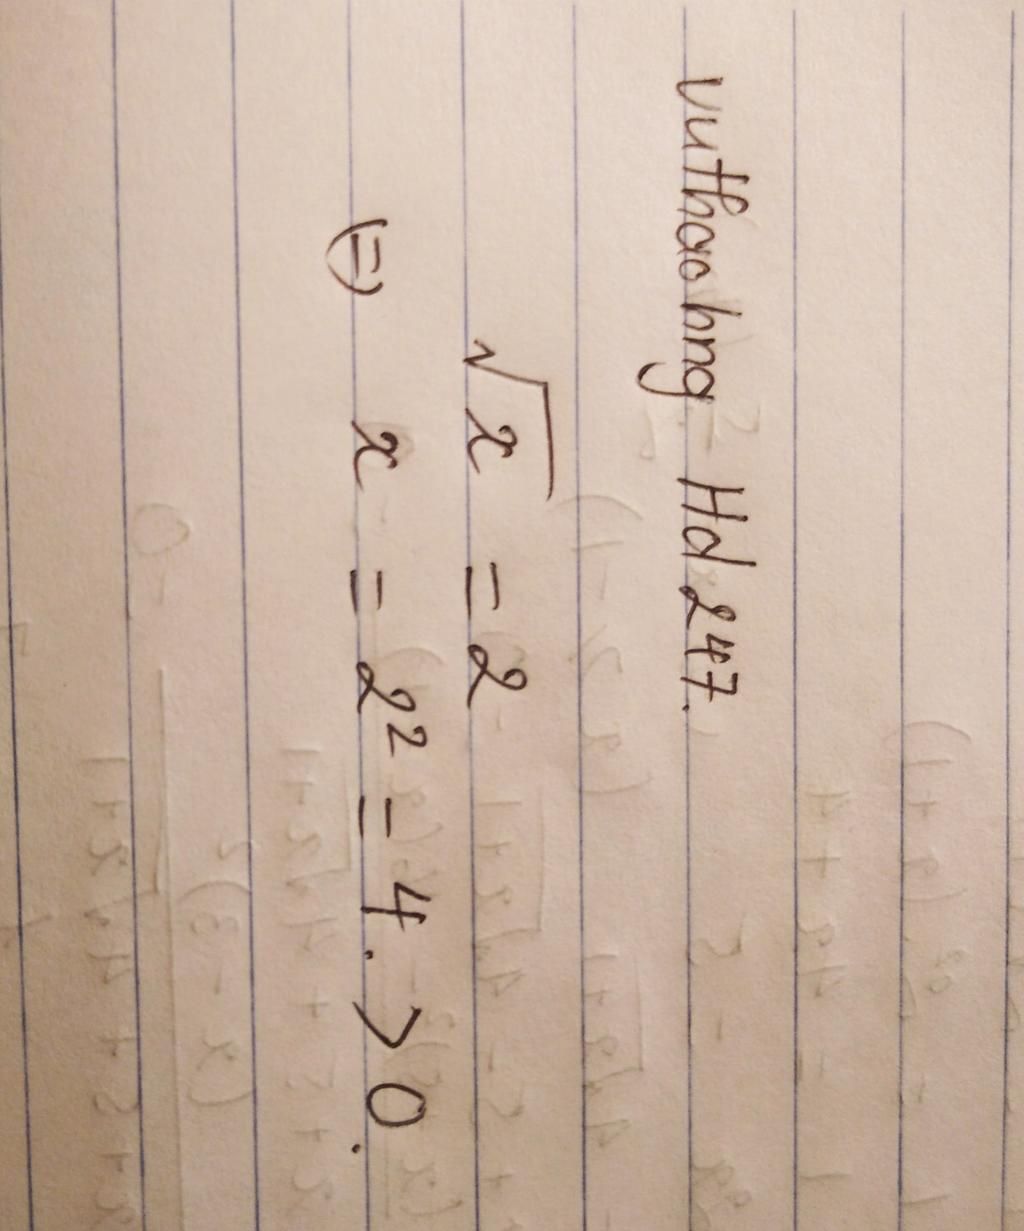 vuthaohng Hd247.
√x = 2
⇔ x = 2² = 4. > 0.